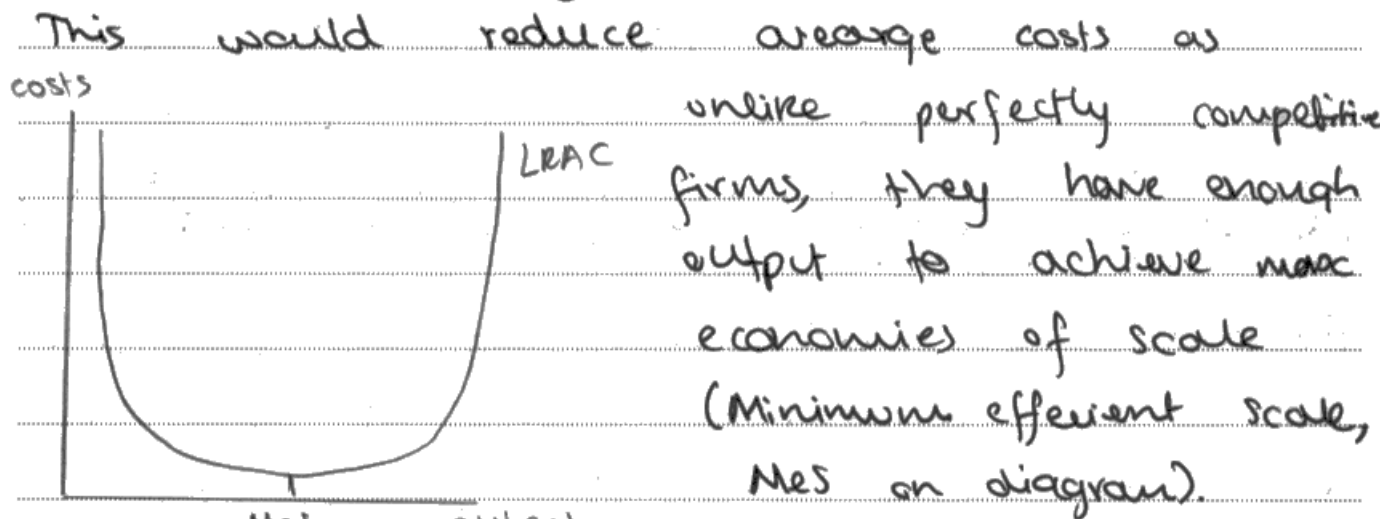 This would reduce avearge costs as
costs
unlike perfectly competitive
LRAC
firms, they have enough
output to achieve max
economies of scale
(Minimum effeient scale,
MeS on diagram).